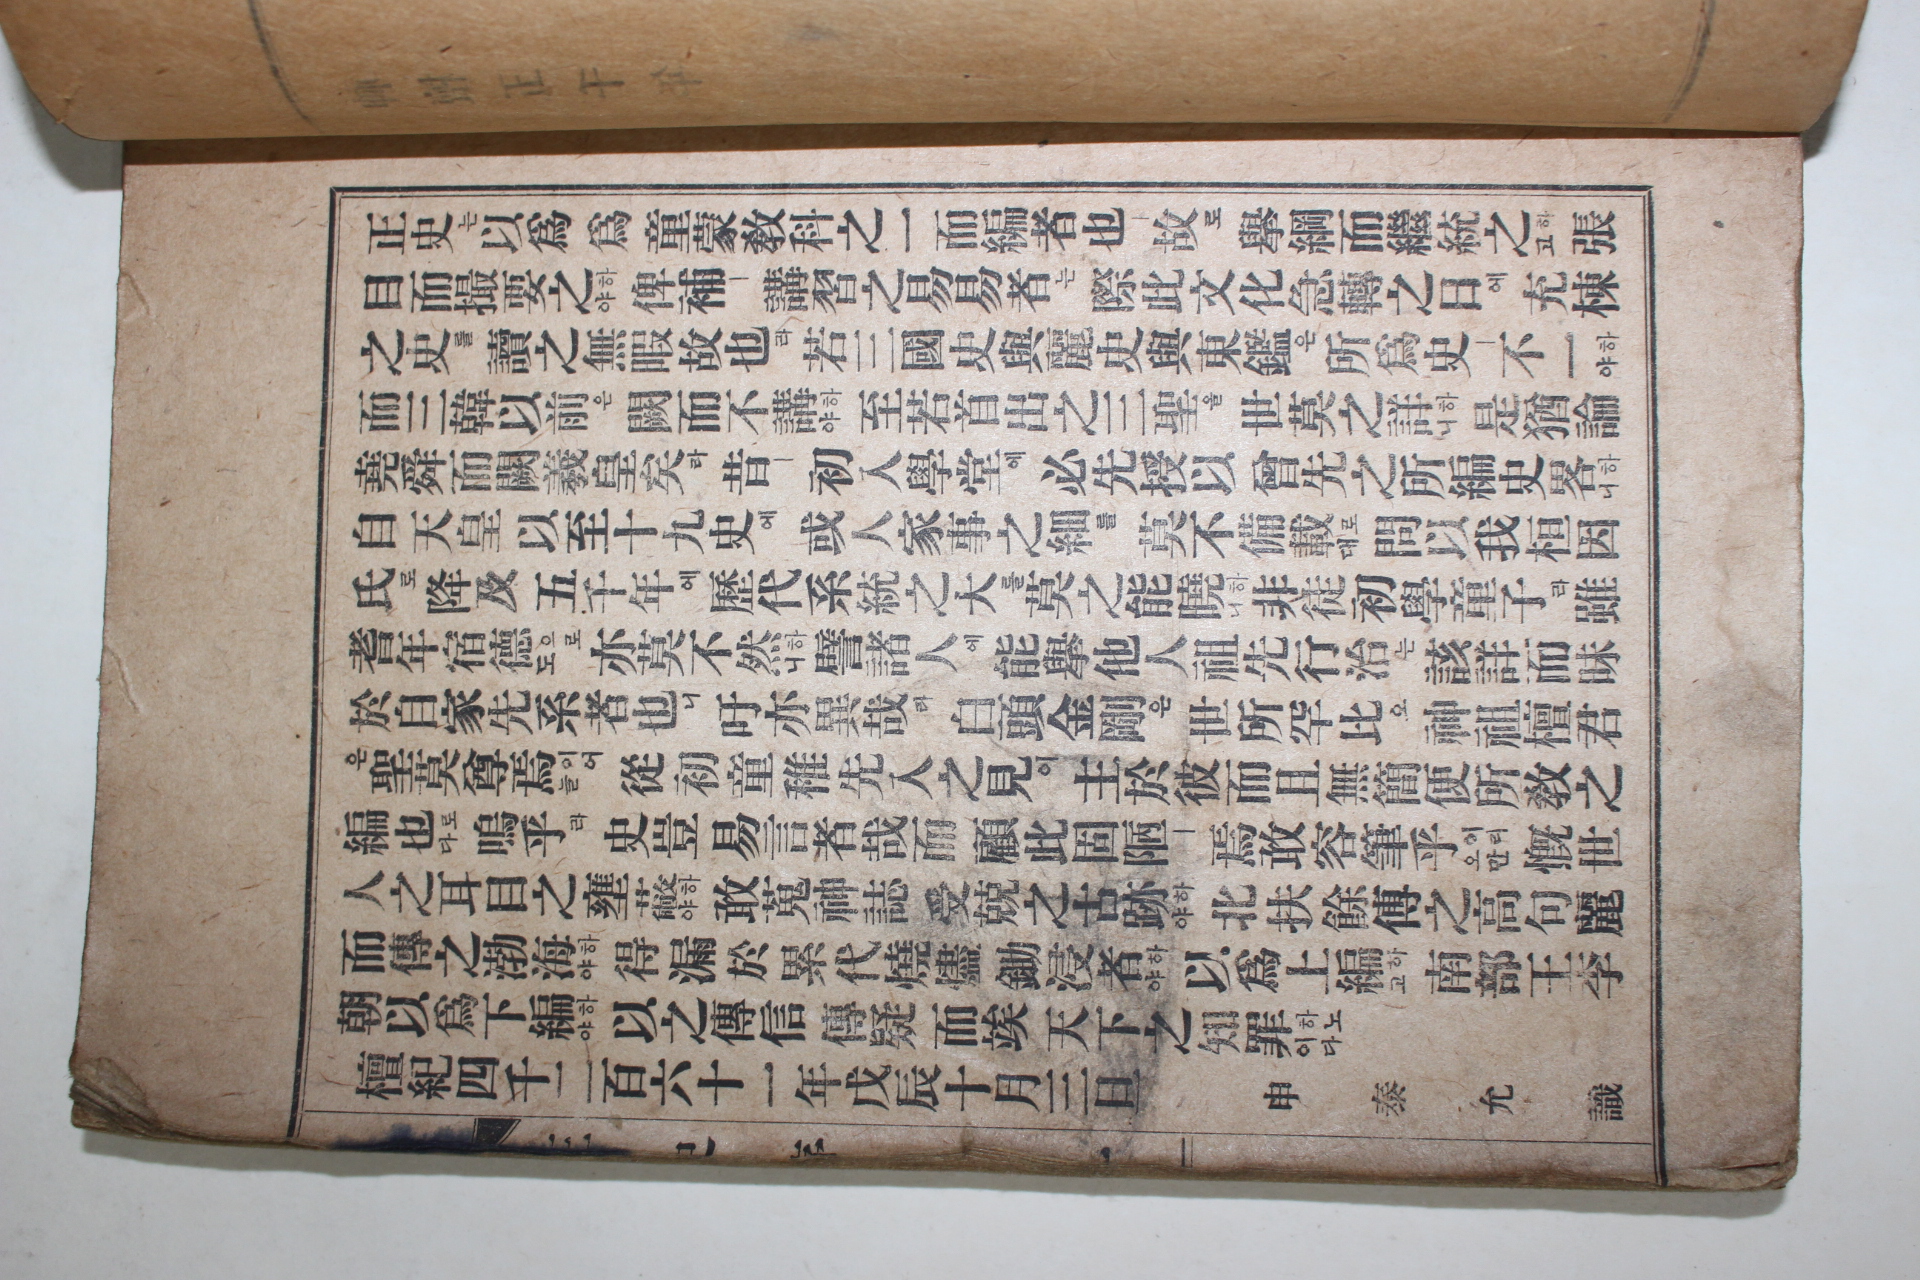 正史는以爲 爲童蒙敎科之一而編者也ㅣ故로 擧綱而繼統之하고張
目而撮要之하야 俾補ㅣ講習之易易者는 際此文化急轉之日에 充棟
之史를 讀之無暇故也라若三國史與麗史與東鑑은所爲史ㅣ不一하야
而三韓以前은 闕而不講하야 至若首出之三聖을 世莫之詳하니 是猶論
堯舜而闕羲皇矣라 昔ㅣ 初入學堂에 必先授以 曾先之所編史畧하니
自 天皇 以至十九史에 或人家事之細를 莫不備載로대問以我桓因
氏로降及 五千年에歷代系統之大를莫之能曉하니非徒初學童子라雖
耆年宿德으로도 亦莫不然하니譬諸人에能擧他人祖先行治는 該詳而昧
於自家先系者也니 吁亦異哉라 白頭金剛은 世所罕比오 神祖檀君
은聖莫尊焉이어늘 從初童稚先入之見이 主於彼而且無簡便所敎之
編也로다 嗚乎라 史豈易言者哉而 顧此固陋ㅣ焉敢容筆乎이리오만慨世
人之耳目之壅蔽하야 敢蒐神誌 受兢之古跡하야 北扶餘傳之高句麗
而傳之渤海하야 得漏於累代燒燼 鋤浸者하야以爲上編하고 南部王李
朝以爲下編하야 以之傳信 傳疑 而竢 天下之知罪하노이다
檀紀四千二百六十一年戊辰十月三旦 申 泰 允 識
史 序
一
神檀五千年